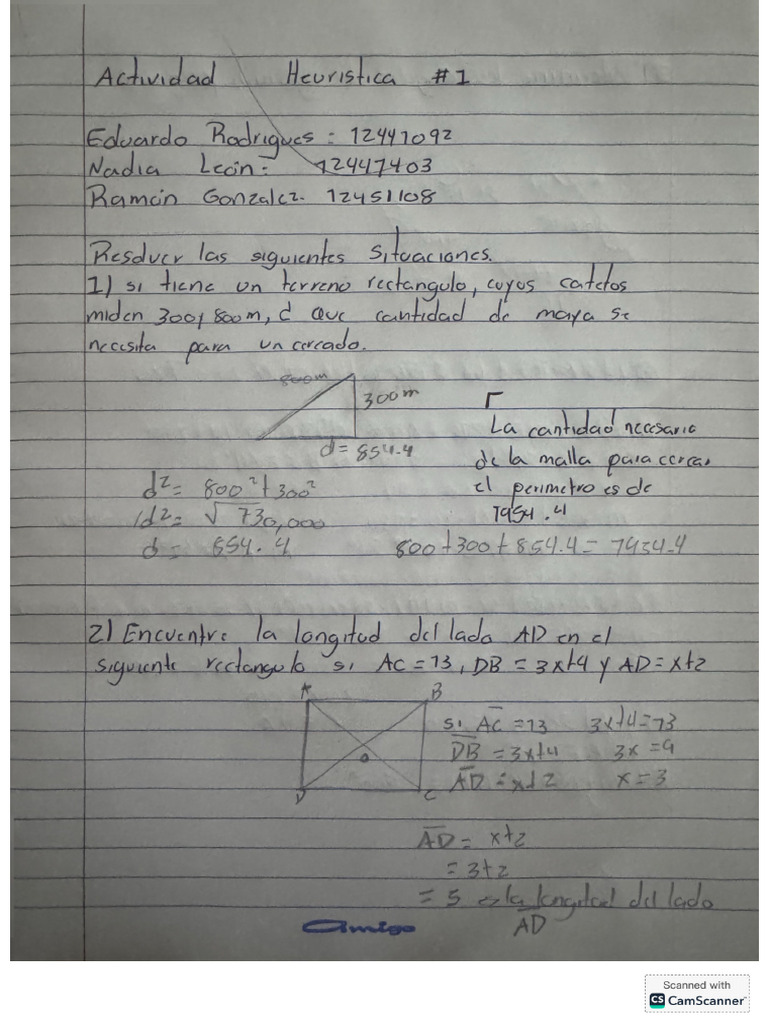 Actividad Heuristica #1
Eduardo Rodrigues: 12441092
Nadia León: 12447403
Ramón Gonzalez. 12451108
Resolver las siguientes situaciones.
1) si tiene un terreno rectangulo, cuyos catetos
miden 300 y 800m, d que cantidad de maya se
necesita para un cercado.
800m
300m
d= 854.4
La cantidad necesaria
de la malla para cercar
el perimetro es de
1954.4
d²= 800²+300²
d²= √730,000
d= 854.4
800+300+854.4= 1954.4
2) Encuentre la longitud del lado AD en el
siguiente rectangulo si AC=13, DB=3x+4 y AD=x+2
A B
D C
o
si AC=13 3x+4=13
DB=3x+4 3x=9
AD=x+2 x=3
AD= x+2
= 3+2
= 5 es la longitud del lado
AD
amigo
Scanned with
CS CamScanner